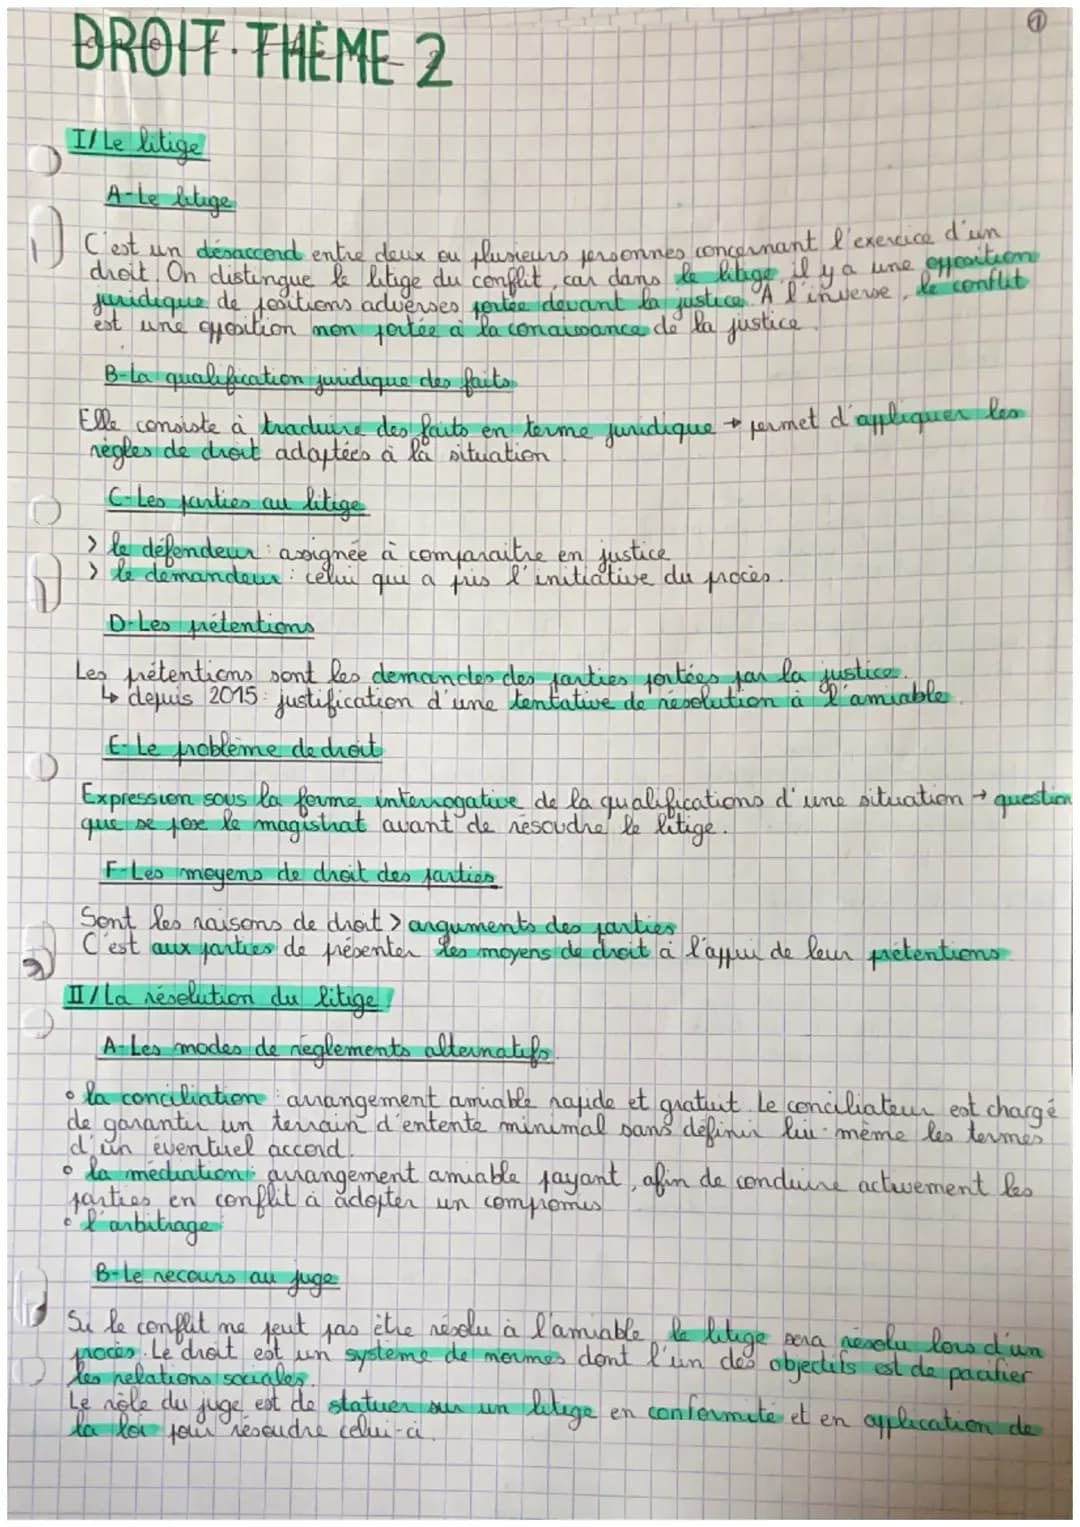 ①
DROIT. THÈME 2
I/ Le litige
A-Le litige
C'est un désaccord entre deux ou plusieurs personnes concernant l'exercice d'un
droit. On distingue le litige du conflit, car dans le litige il y a une opposition
juridique de positions adverses portée devant la justice. A l'inverse, le conflit
est une opposition non portée à la connaissance de la justice.
B-La qualification juridique des faits
Elle consiste à traduire des faits en terme juridique → permet d'appliquer les
règles de droit adaptées à la situation.
C-Les parties au litige
> le défendeur : assignée à comparaitre en justice
> le demandeur : celui qui a pris l'initiative du procès.
D-Les prétentions
Les prétentions sont les demandes des parties portées par la justice.
↳ depuis 2015 : justification d'une tentative de résolution à l'amiable.
E-Le problème de droit
Expression sous la forme interrogative de la qualifications d'une situation → question
que se pose le magistrat avant de résoudre le litige.
F-Les moyens de droit des parties
Sont les raisons de droit > arguments des parties
C'est aux parties de présenter les moyens de droit à l'appui de leur prétentions
II/ La résolution du litige
A-Les modes de règlements alternatifs
• la conciliation : arrangement amiable rapide et gratuit. Le conciliateur est chargé
de garantir un terrain d'entente minimal sans définir lui-même les termes
d'un éventuel accord.
• la médiation : arrangement amiable payant, afin de conduire activement les
parties en conflit à adopter un compromis
• l'arbitrage
B-Le recours au juge
Si le conflit ne peut pas être résolu à l'amiable, le litige sera résolu lors d'un
procès. Le droit est un système de normes dont l'un des objectifs est de pacifier
les relations sociales.
Le rôle du juge est de statuer sur un litige en conformité et en application de
la loi pour résoudre celui-ci.